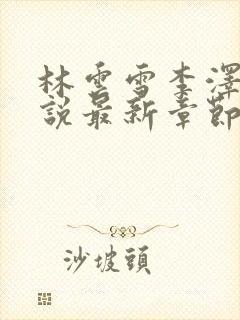 林雲雪李澤
說最新章節
沙坡頭